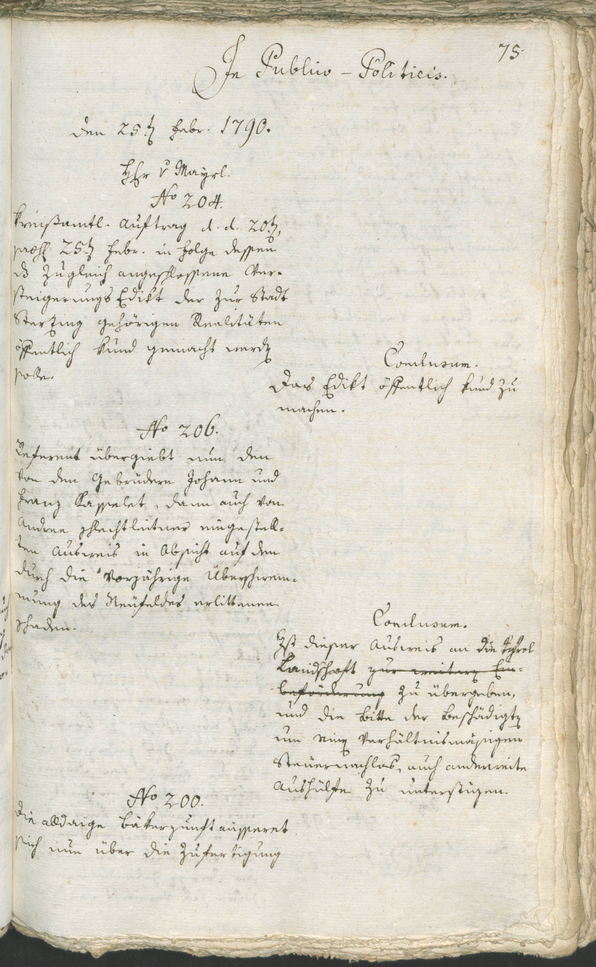 75.
In Publico-Politicis.
den 25t Febr. 1790.
Hr v Mayrl.
No 204.
Kreisßamtl. Auftrag d. d. 20t,
25t Febr. in Folge dessen
das zugleich angeschlossene Ver-
steigerungs Edikt der zur Stadt
Sterzing gehörigen Realitäten
öffentlich kund gemacht werden
solle.
Conclusum.
Das Edikt öffentlich kund zu
machen.
No 206.
Referent übergiebt nun den
von den Gebrüdern Johann und
Franz Kasselet, dann auch von
Andree Schlechtleitner eingestell-
ten Ausweis in Absicht auf den
durch die vorjährige Überschwem-
mung des Neufeldes erlittenen
Schaden.
Conclusum.
Ist dieser Ausweis an die tyrol
Landschaft zur weitern Ein-
beförderung zu übergeben,
und die Bitte der Beschädigten
um einen verhältnismäsigen
Steuernachlas, auch anderweite
Aushülfe zu unterstüzen.
No 200.
die alldaige Bäkerzunft äusseret
sich nun über die Zufertigung